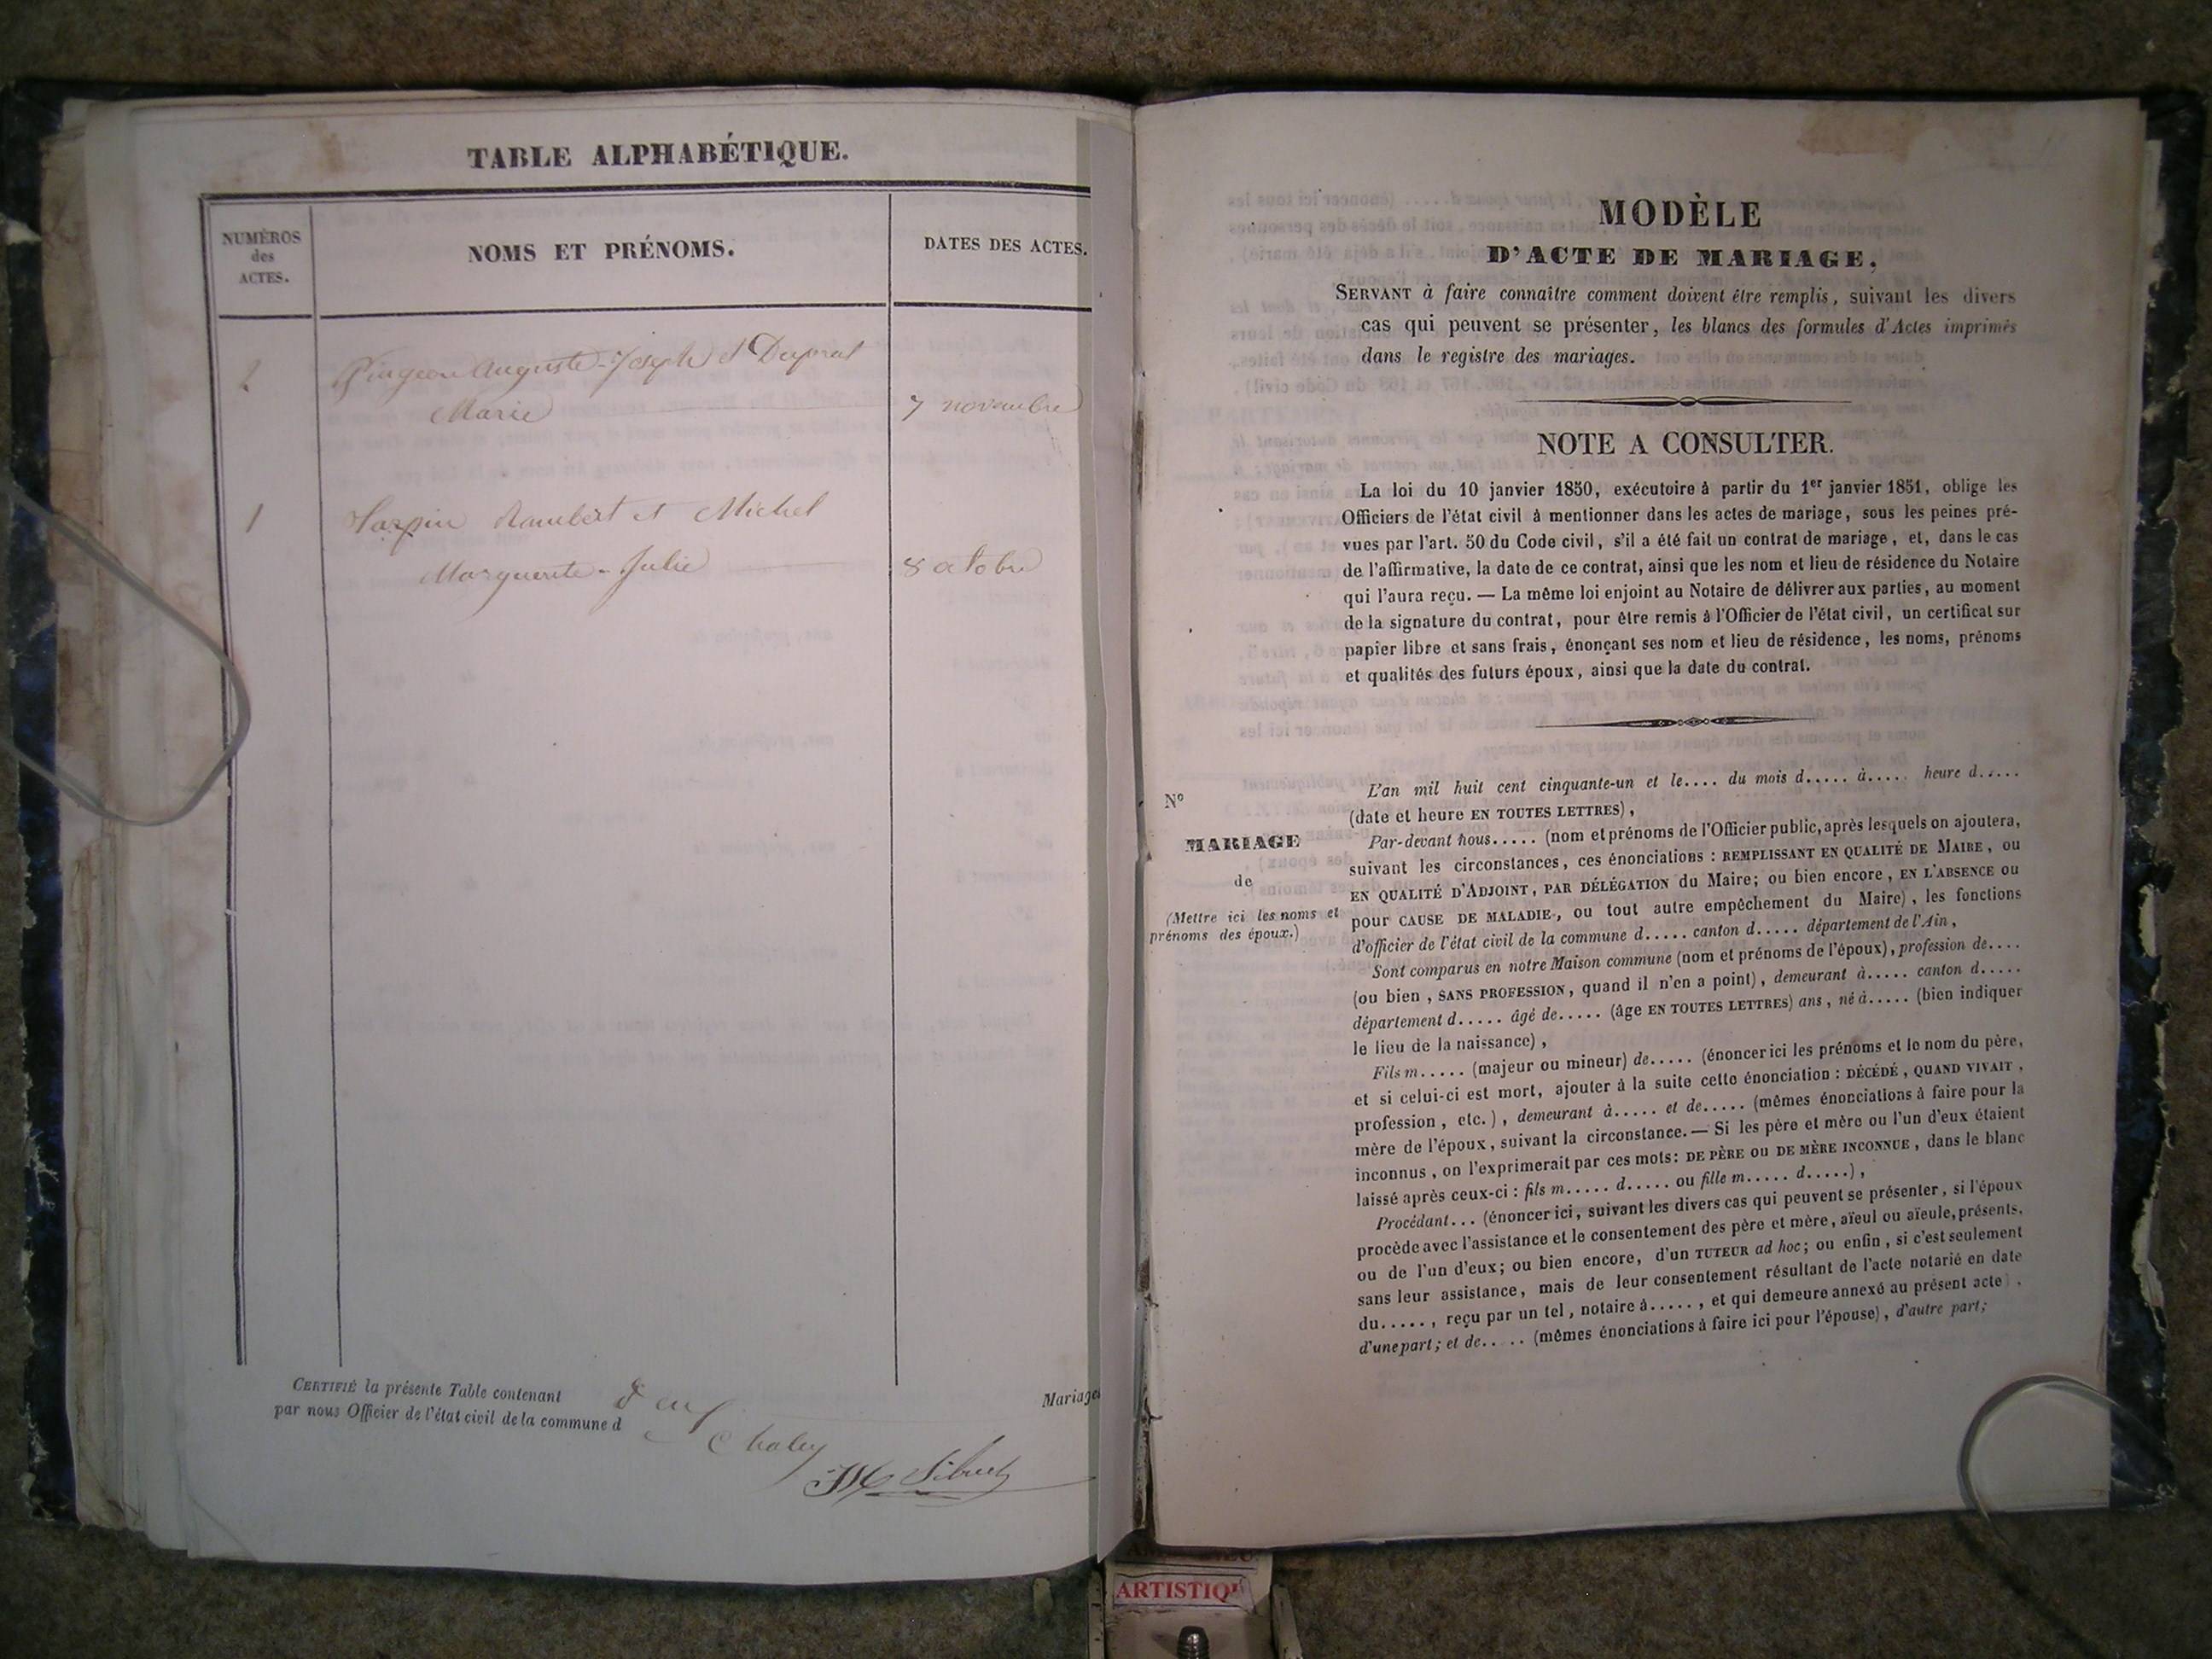 TABLE ALPHABÉTIQUE.
NUMÉROS
des
ACTES.
NOMS ET PRÉNOMS.
DATES DES ACTES.
2 Pingeon Auguste-Joseph et Duprat
Marie 7 novembre
1 Rambert et Michel
Marguerite-Julie 8 octobre
CERTIFIÉ la présente Table contenant deux Mariage
par nous Officier de l'état civil de la commune d Chaley
MODÈLE
D'ACTE DE MARIAGE,
SERVANT à faire connaître comment doivent être remplis, suivant les divers
cas qui peuvent se présenter, les blancs des formules d'Actes imprimés
dans le registre des mariages.
NOTE A CONSULTER.
La loi du 10 janvier 1850, exécutoire à partir du 1er janvier 1851, oblige les
Officiers de l'état civil à mentionner dans les actes de mariage, sous les peines pré-
vues par l'art. 50 du Code civil, s'il a été fait un contrat de mariage, et, dans le cas
de l'affirmative, la date de ce contrat, ainsi que les nom et lieu de résidence du Notaire
qui l'aura reçu. — La même loi enjoint au Notaire de délivrer aux parties, au moment
de la signature du contrat, pour être remis à l'Officier de l'état civil, un certificat sur
papier libre et sans frais, énonçant ses nom et lieu de résidence, les noms, prénoms
et qualités des futurs époux, ainsi que la date du contrat.
N°
MARIAGE
de
(Mettre ici les noms et
prénoms des époux.)
L'an mil huit cent cinquante-un et le.... du mois d..... à..... heure d.....
(date et heure EN TOUTES LETTRES),
Par-devant nous..... (nom et prénoms de l'Officier public, après lesquels on ajoutera,
suivant les circonstances, ces énonciations : REMPLISSANT EN QUALITÉ DE MAIRE, ou
EN QUALITÉ D'ADJOINT, PAR DÉLÉGATION du Maire; ou bien encore, EN L'ABSENCE ou
pour CAUSE DE MALADIE, ou tout autre empêchement du Maire), les fonctions
d'officier de l'état civil de la commune d..... canton d..... département de l'Ain,
Sont comparus en notre Maison commune (nom et prénoms de l'époux), profession de....
(ou bien, SANS PROFESSION, quand il n'en a point), demeurant à..... canton d.....
département d..... âgé de..... (âge EN TOUTES LETTRES) ans, né à..... (bien indiquer
le lieu de la naissance),
Fils m..... (majeur ou mineur) de..... (énoncer ici les prénoms et le nom du père,
et si celui-ci est mort, ajouter à la suite cette énonciation : DÉCÉDÉ, QUAND VIVAIT,
profession, etc.), demeurant à..... et de..... (mêmes énonciations à faire pour la
mère de l'époux, suivant la circonstance. — Si les père et mère ou l'un d'eux étaient
inconnus, on l'exprimerait par ces mots: DE PÈRE ou DE MÈRE INCONNUE, dans le blanc
laissé après ceux-ci : fils m..... d..... ou fille m..... d.....),
Procédant... (énoncer ici, suivant les divers cas qui peuvent se présenter, si l'époux
procède avec l'assistance et le consentement des père et mère, aïeul ou aïeule, présents,
ou de l'un d'eux; ou bien encore, d'un TUTEUR ad hoc; ou enfin, si c'est seulement
sans leur assistance, mais de leur consentement résultant de l'acte notarié en date
du....., reçu par un tel, notaire à....., et qui demeure annexé au présent acte),
d'une part; et de..... (mêmes énonciations à faire ici pour l'épouse), d'autre part;
ARTISTIQU